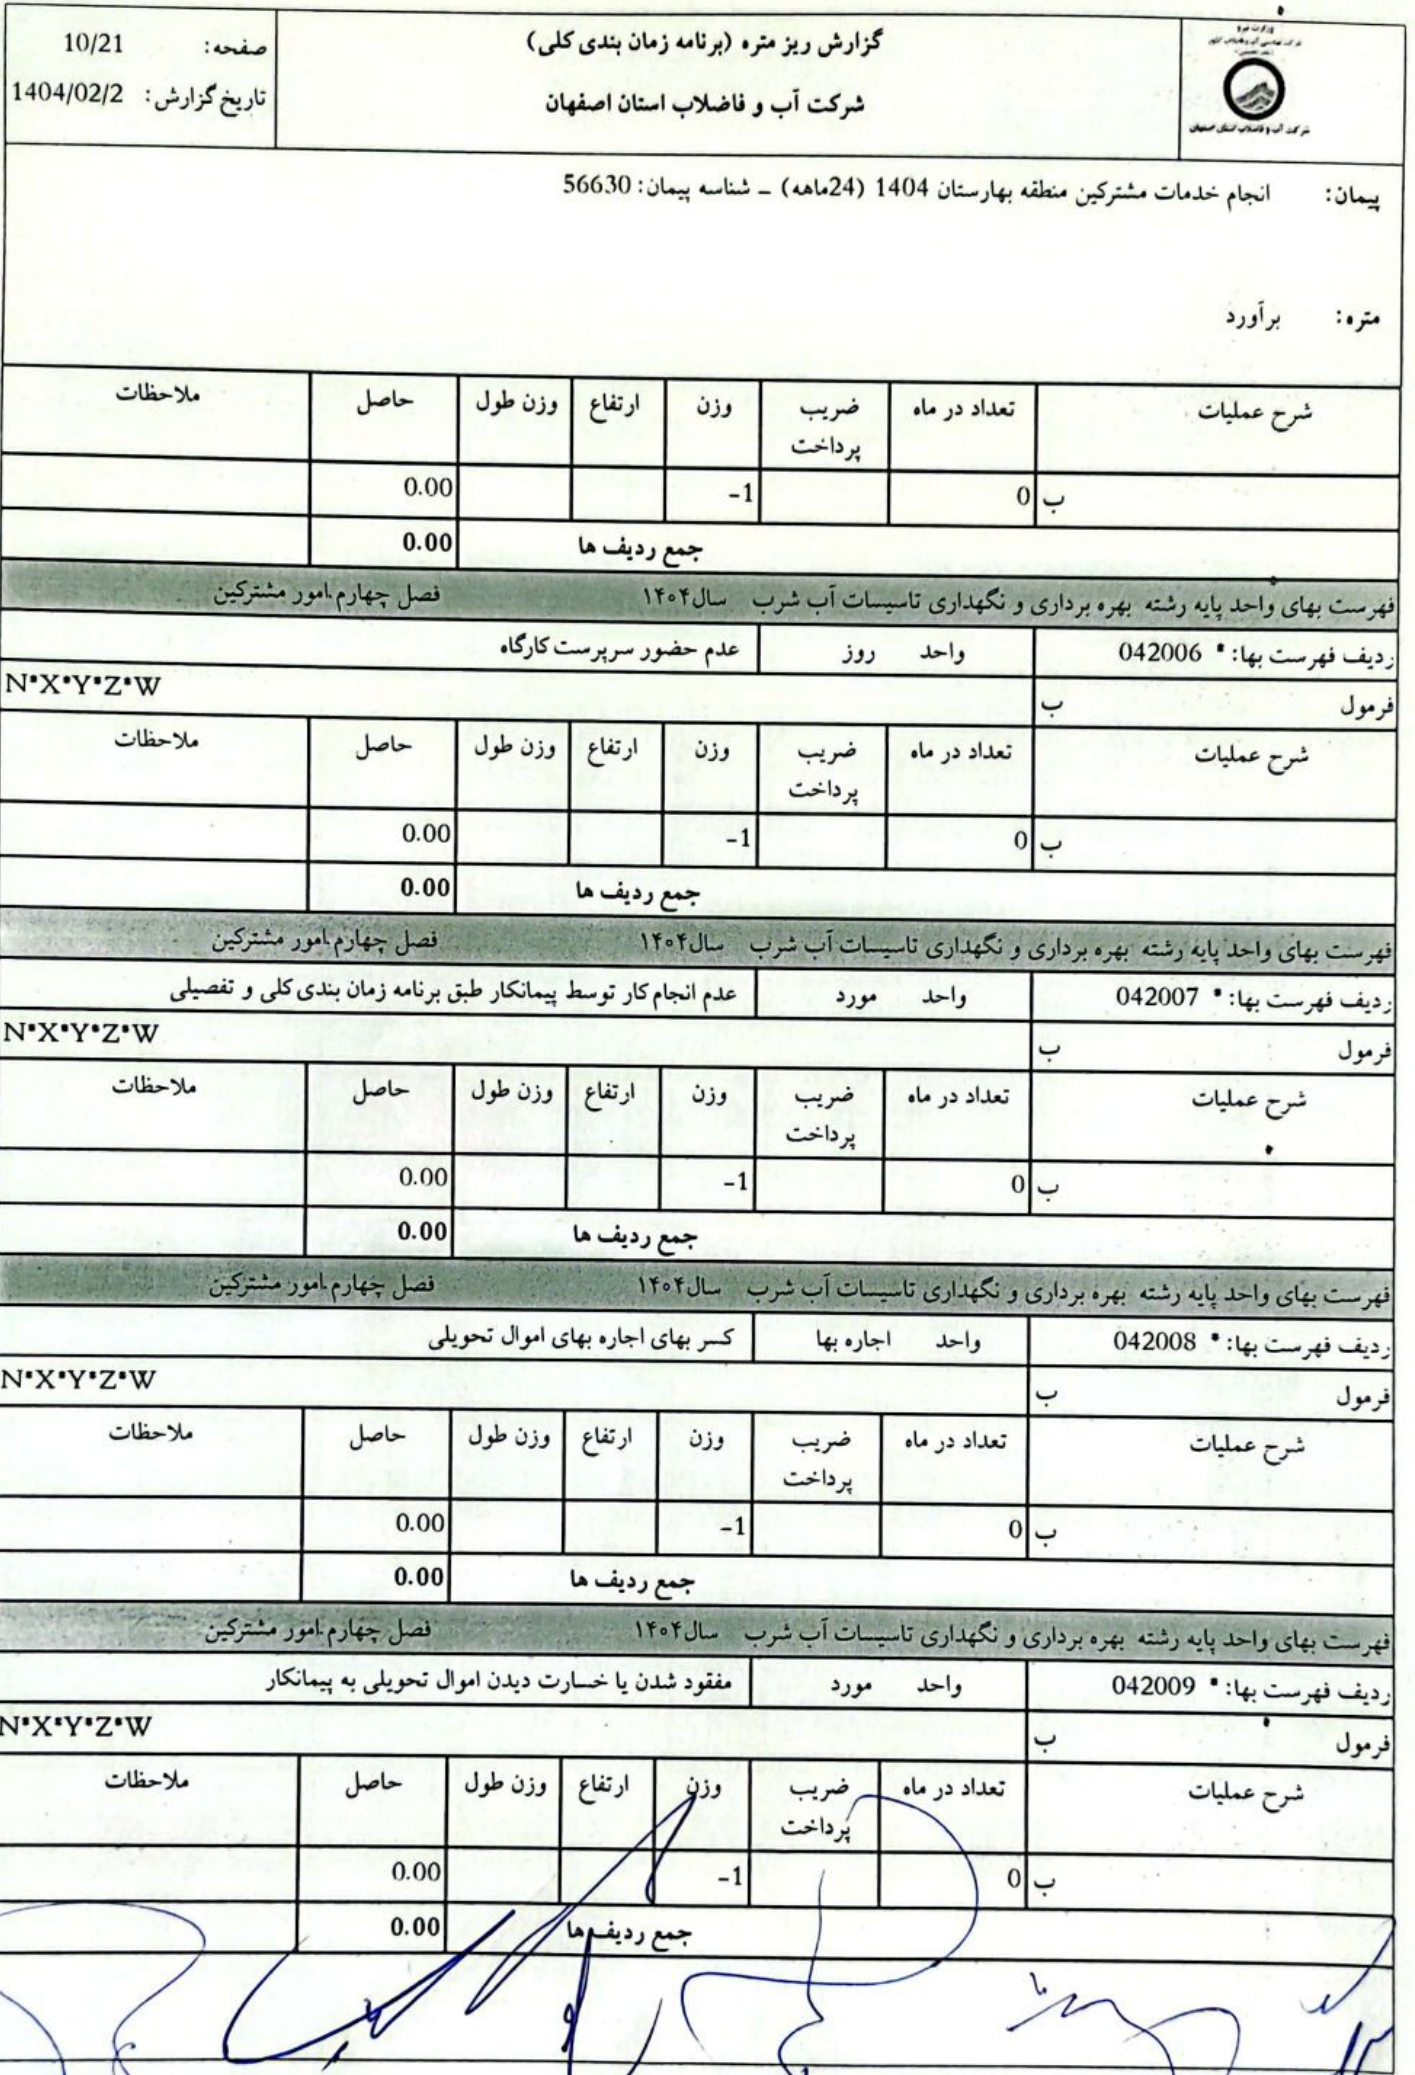 وزارت نیرو
شرکت آب و فاضلاب استان اصفهان
گزارش ریز متره (برنامه زمان بندی کلی)
شرکت آب و فاضلاب استان اصفهان
صفحه: 10/21
تاریخ گزارش: 1404/02/2
پیمان: انجام خدمات مشترکین منطقه بهارستان 1404 (24ماهه) ـ شناسه پیمان: 56630
متره: برآورد
شرح عملیات تعداد در ماه ضریب پرداخت وزن ارتفاع وزن طول حاصل ملاحظات
ب 0 -1 0.00
جمع ردیف ها 0.00
فهرست بهای واحد پایه رشته بهره برداری و نگهداری تاسیسات آب شرب سال۱۴۰۴ فصل چهارم.امور مشترکین
ردیف فهرست بها: * 042006 واحد روز عدم حضور سرپرست کارگاه
فرمول ب N*X*Y*Z*W
شرح عملیات تعداد در ماه ضریب پرداخت وزن ارتفاع وزن طول حاصل ملاحظات
ب 0 -1 0.00
جمع ردیف ها 0.00
فهرست بهای واحد پایه رشته بهره برداری و نگهداری تاسیسات آب شرب سال۱۴۰۴ فصل چهارم.امور مشترکین
ردیف فهرست بها: * 042007 واحد مورد عدم انجام کار توسط پیمانکار طبق برنامه زمان بندی کلی و تفصیلی
فرمول ب N*X*Y*Z*W
شرح عملیات تعداد در ماه ضریب پرداخت وزن ارتفاع وزن طول حاصل ملاحظات
ب 0 -1 0.00
جمع ردیف ها 0.00
فهرست بهای واحد پایه رشته بهره برداری و نگهداری تاسیسات آب شرب سال۱۴۰۴ فصل چهارم.امور مشترکین
ردیف فهرست بها: * 042008 واحد اجاره بها کسر بهای اجاره بهای اموال تحویلی
فرمول ب N*X*Y*Z*W
شرح عملیات تعداد در ماه ضریب پرداخت وزن ارتفاع وزن طول حاصل ملاحظات
ب 0 -1 0.00
جمع ردیف ها 0.00
فهرست بهای واحد پایه رشته بهره برداری و نگهداری تاسیسات آب شرب سال۱۴۰۴ فصل چهارم.امور مشترکین
ردیف فهرست بها: * 042009 واحد مورد مفقود شدن یا خسارت دیدن اموال تحویلی به پیمانکار
فرمول ب N*X*Y*Z*W
شرح عملیات تعداد در ماه ضریب پرداخت وزن ارتفاع وزن طول حاصل ملاحظات
ب 0 -1 0.00
جمع ردیف ها 0.00